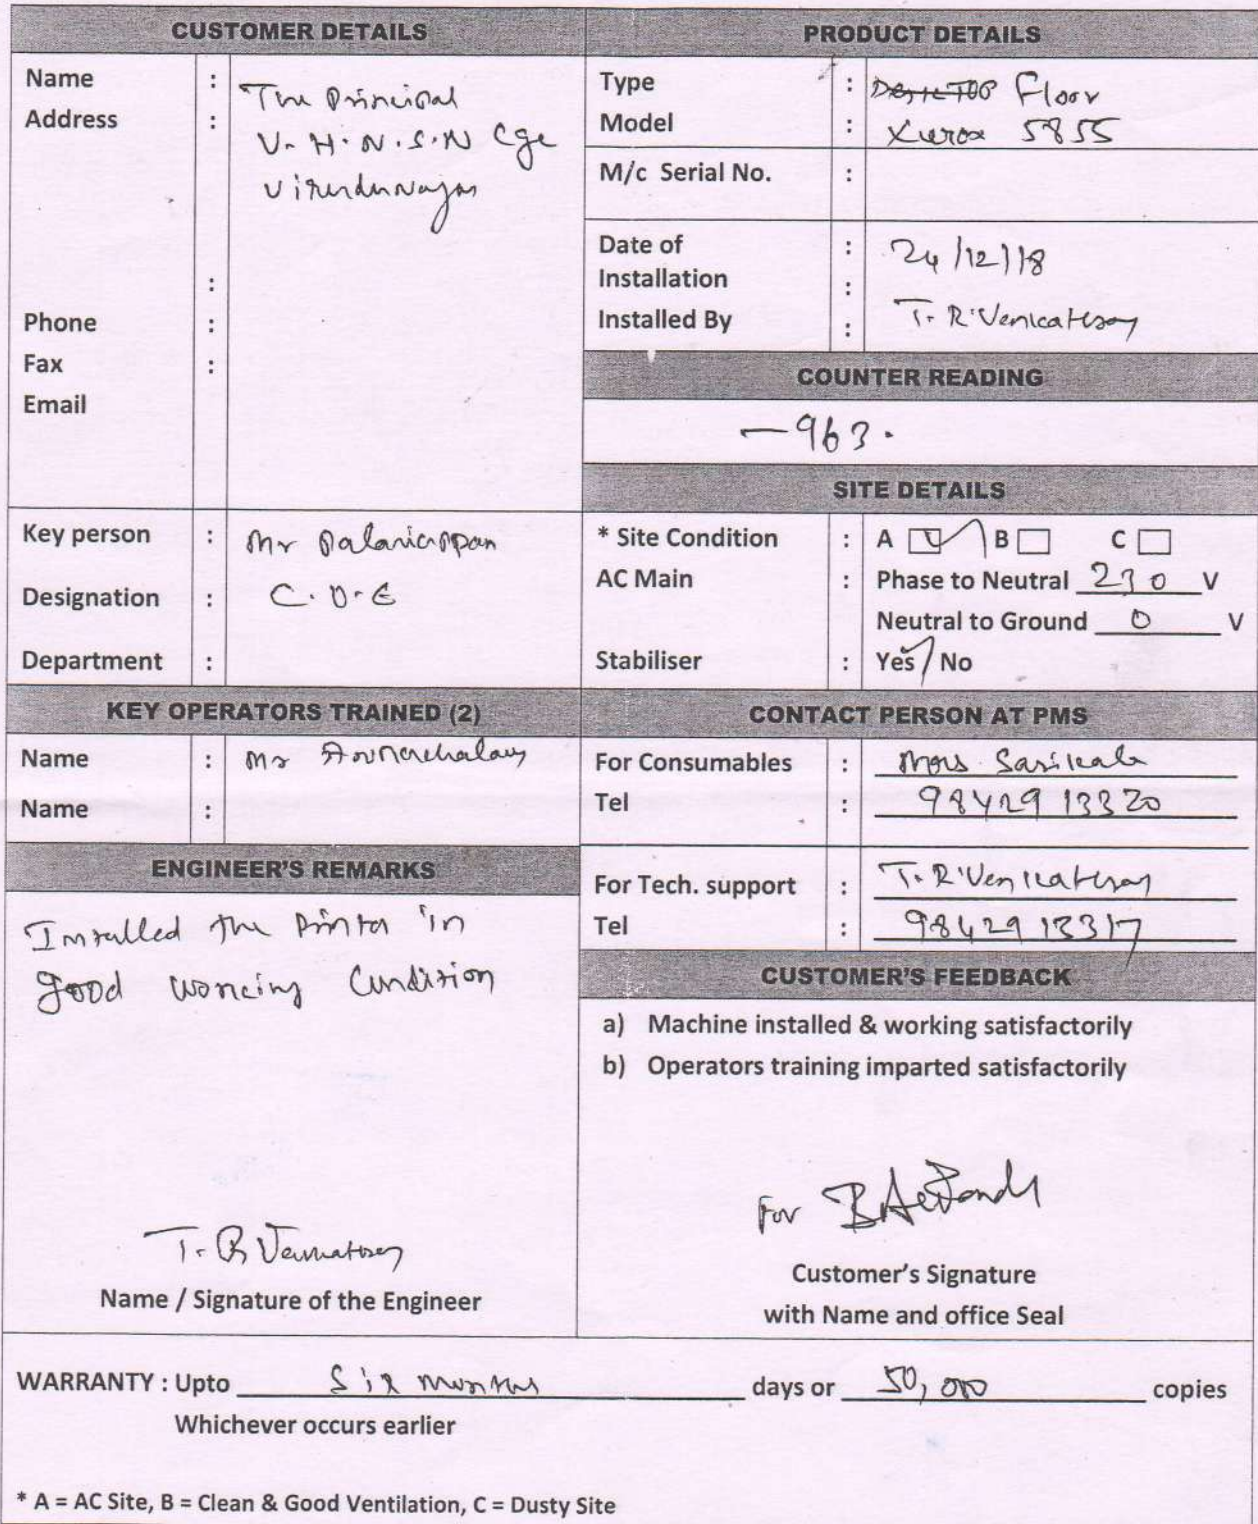 CUSTOMER DETAILS
Name :
Address :
The Principal
V. H. N. S. N Cge
Virudunagar
:
Phone :
Fax :
Email
Key person : Mr Palaniappan
Designation : C.O.E
Department :
KEY OPERATORS TRAINED (2)
Name : Mr Arunachalam
Name :
ENGINEER'S REMARKS
Installed the Printer in
good working Condition
T. R Venkatesan
Name / Signature of the Engineer
PRODUCT DETAILS
Type : DESKTOP Floor
Model : Xerox 5855
M/c Serial No. :
Date of : 24/12/18
Installation :
Installed By : T. R. Venkatesan
COUNTER READING
— 963.
SITE DETAILS
* Site Condition : A B C
AC Main : Phase to Neutral 230 V
Neutral to Ground 0 V
Stabiliser : Yes / No
CONTACT PERSON AT PMS
For Consumables : Mrs. Sasikala
Tel : 98429 13320
For Tech. support : T. R. Venkatesan
Tel : 98429 13317
CUSTOMER'S FEEDBACK
a) Machine installed & working satisfactorily
b) Operators training imparted satisfactorily
For
Customer's Signature
with Name and office Seal
WARRANTY : Upto Six months days or 50,000 copies
Whichever occurs earlier
* A = AC Site, B = Clean & Good Ventilation, C = Dusty Site